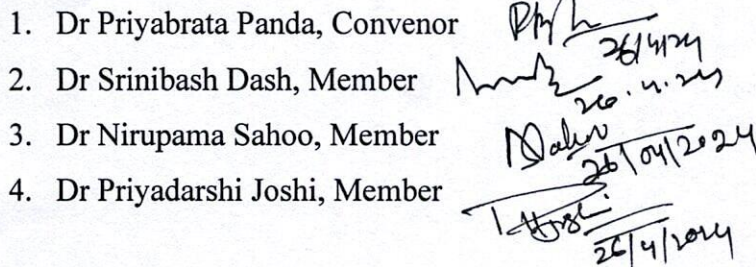 1. Dr Priyabrata Panda, Convenor
26/4/24
2. Dr Srinibash Dash, Member
26.4.24
3. Dr Nirupama Sahoo, Member
NSahoo
26/04/2024
4. Dr Priyadarshi Joshi, Member
26/4/2024